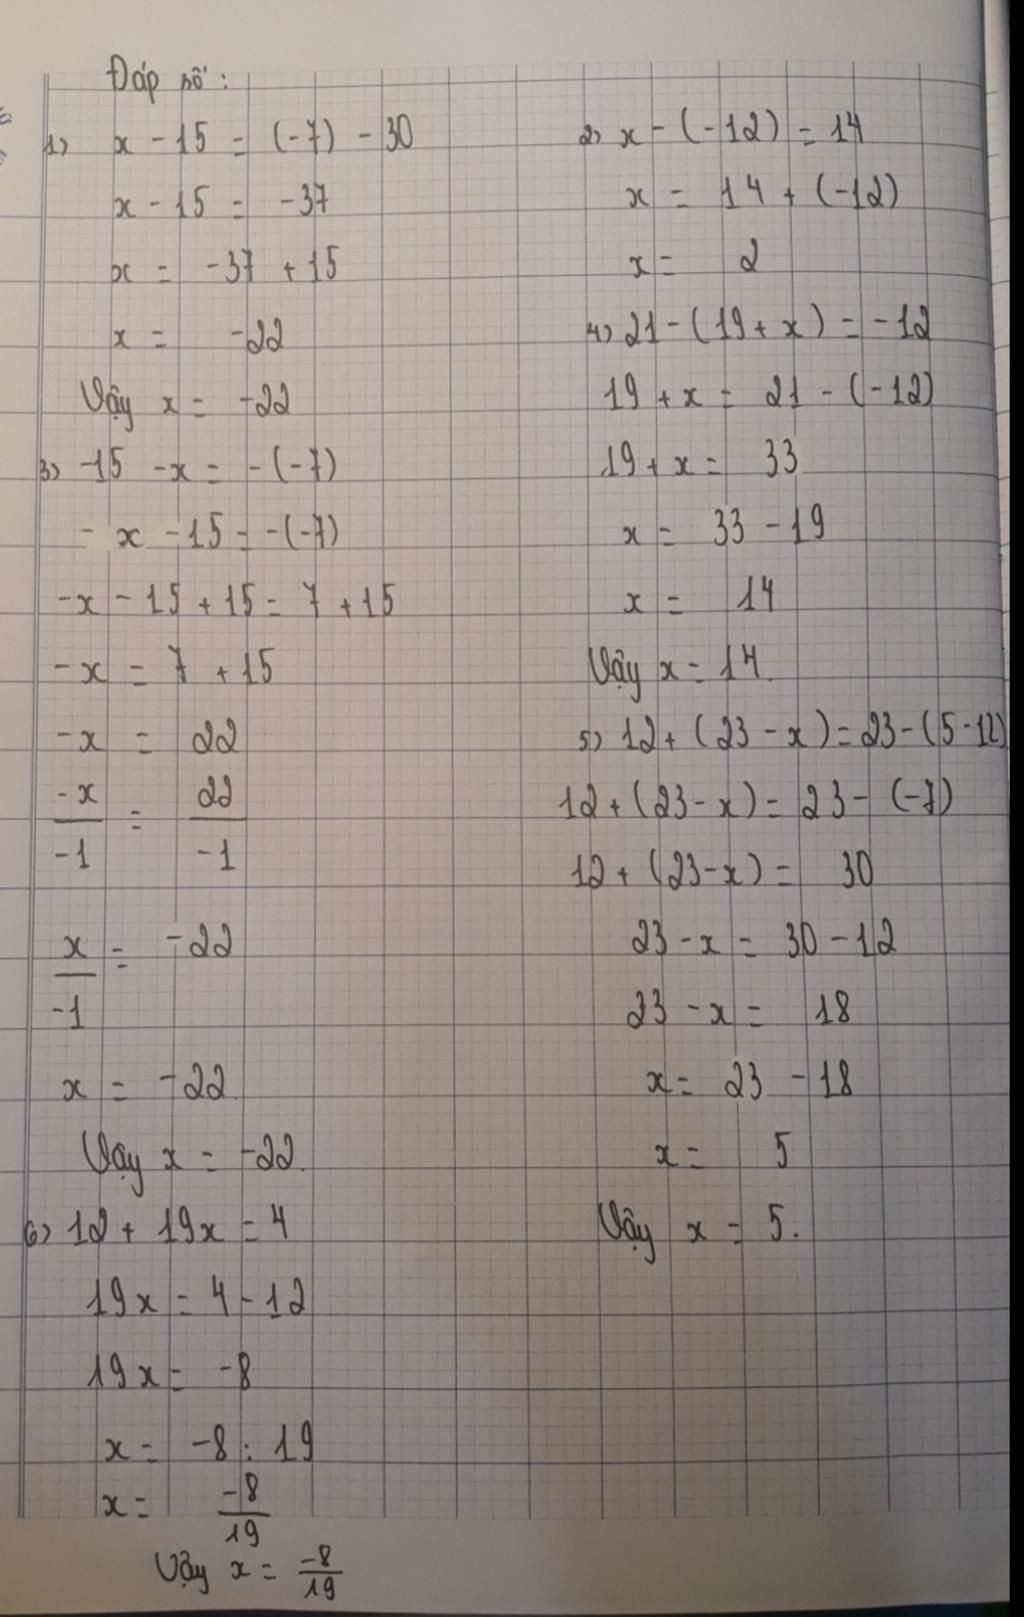 Đáp số:
1) x - 15 = (-7) - 30
x - 15 = -37
x = -37 + 15
x = -22
Vậy x = -22
3) -15 - x = -(-7)
- x - 15 = -(-7)
-x - 15 + 15 = 7 + 15
-x = 7 + 15
-x = 22
-x/-1 = 22/-1
x/-1 = -22
x = -22.
Vậy x = -22.
6) 12 + 19x = 4
19x = 4 - 12
19x = -8
x = -8 : 19
x = -8/19
Vậy x = -8/19
2) x - (-12) = 14
x = 14 + (-12)
x = 2
4) 21 - (19 + x) = -12
19 + x = 21 - (-12)
19 + x = 33
x = 33 - 19
x = 14
Vậy x = 14.
5) 12 + (23 - x) = 23 - (5 - 12)
12 + (23 - x) = 23 - (-7)
12 + (23 - x) = 30
23 - x = 30 - 12
23 - x = 18
x = 23 - 18
x = 5
Vậy x = 5.